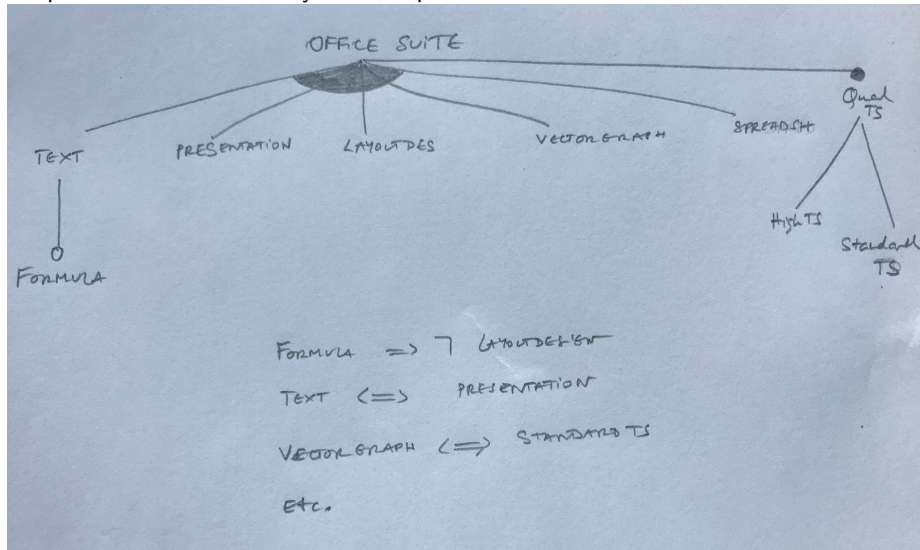 OFFICE SUITE
Qual
TS
TEXT
PRESENTATION
LAYOUTDES
VECTORGRAPH
SPREADSH
High TS
Standard
TS
FORMULA
FORMULA => ¬ LAYOUTDESIGN
TEXT <=> PRESENTATION
VECTORGRAPH <=> STANDARD TS
Etc.